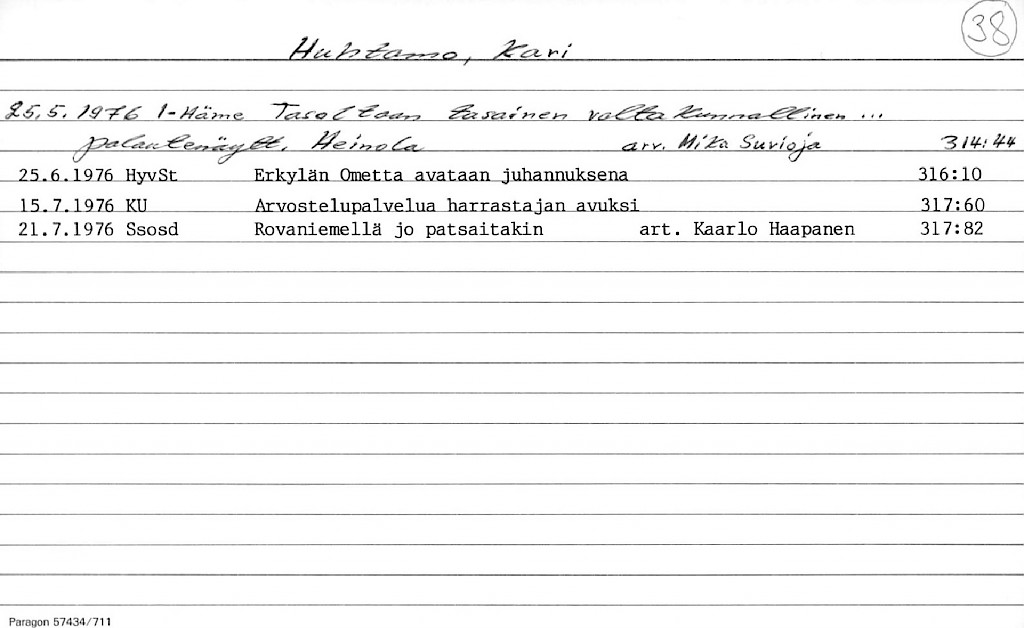 38
Huhtamo, Kari
25.5.1976 I-Häme Tasoltaan tasainen valtakunnallinen ...
palautenäytt. Heinola arv. Mika Suvioja 314:44
25.6.1976 HyvSt Erkylän Ometta avataan juhannuksena 316:10
15.7.1976 KU Arvostelupalvelua harrastajan avuksi 317:60
21.7.1976 Ssosd Rovaniemellä jo patsaitakin art. Kaarlo Haapanen 317:82
Paragon 57434/711